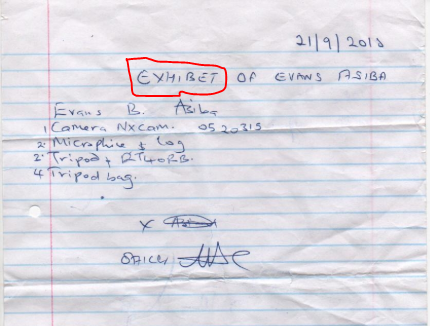 21/9/2015
EXHIBET OF EVANS ASIBA
Evans B. Asiba
1 Camera Nxcam. 0520315
2 Microphine + Log
3 Tripod + RT40RB.
4 Tripod bag.
X